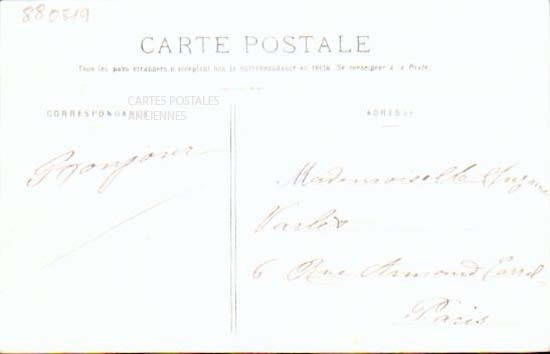 880519
CARTE POSTALE
Tous les pays étrangers n'acceptent pas la correspondance au recto (Se renseigner à la Poste)
CARTES POSTALES
ANCIENNES
CORRESPONDANCE
ADRESSE
Bonjour
Mademoiselle
6 Rue Armand Carrel
Paris